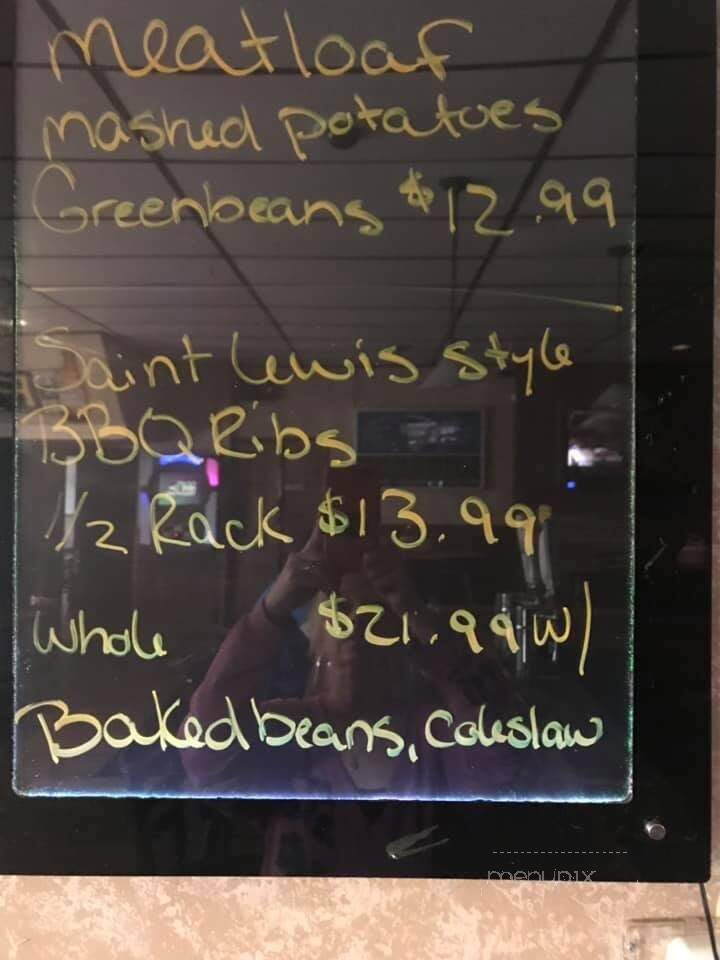 meatloaf
mashed potatoes
Greenbeans $12.99
Saint Lewis style
BBQ Ribs
1/2 Rack $13.99
whole $21.99 w/
Baked beans, Coleslaw
menupix